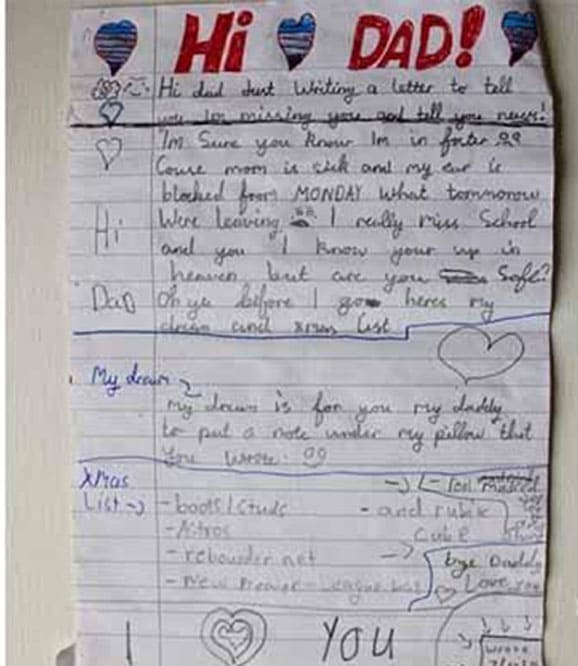 Hi DAD!
Hi dad Just Writing a letter to tell
you Im missing you and tell you news!
Im Sure you know Im in foster
Couse mom is sick and my ear is
blocked from MONDAY what tommorow
Were leaving I really miss School
Hi
and you I know your up in
heaven but are you Safe?
Dad
Oh ye before I go heres my
dream and xmas list
My dream
My dream is for you my daddy
to put a note under my pillow that
you wrote.
Xmas
List
- boots/studs
- and rubix
cube
- Nitros
- rebounder net
bye Daddy
Love you
- New
I YOU
wrote